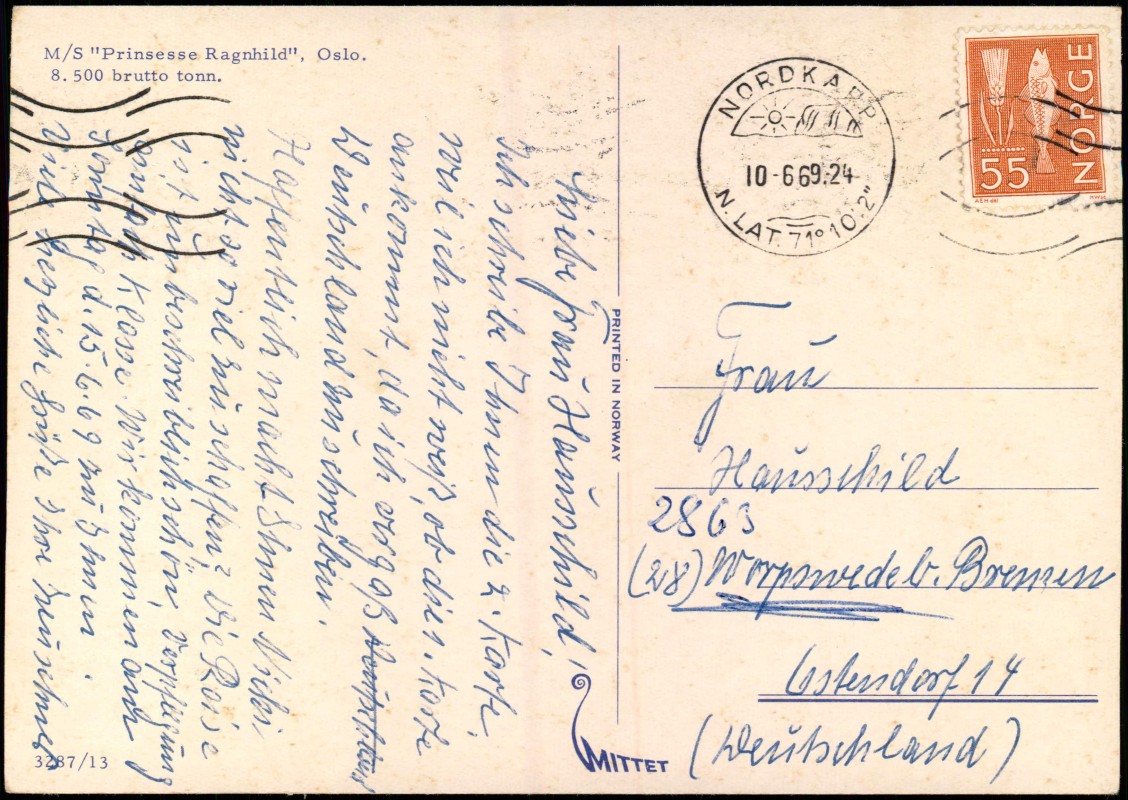 M/S "Prinsesse Ragnhild", Oslo.
8.500 brutto tonn.
Liebe Frau Hausschild!
Ich schreibe Ihnen die 2. Karte,
weil ich nicht weiß, ob die 1. Karte
ankommt, da ich vergaß
Deutschland zu schreiben.
Hoffentlich macht Ihnen
nicht so viel zu schaffen? Die Reise
ist unbeschreiblich schön, Verpflegung
einfach Klasse. Wir kommen am
Sonntag d. 15.6.69 zu Ihnen.
Viele herzliche Grüße Ihre
3287/13
PRINTED IN NORWAY
MITTET
NORDKAPP
10-6 69.24
N. LAT. 71°10'2"
NORGE
55
Frau
Hausschild
2863
(28) Worpswede b. Bremen
Ostendorf 14
(Deutschland)